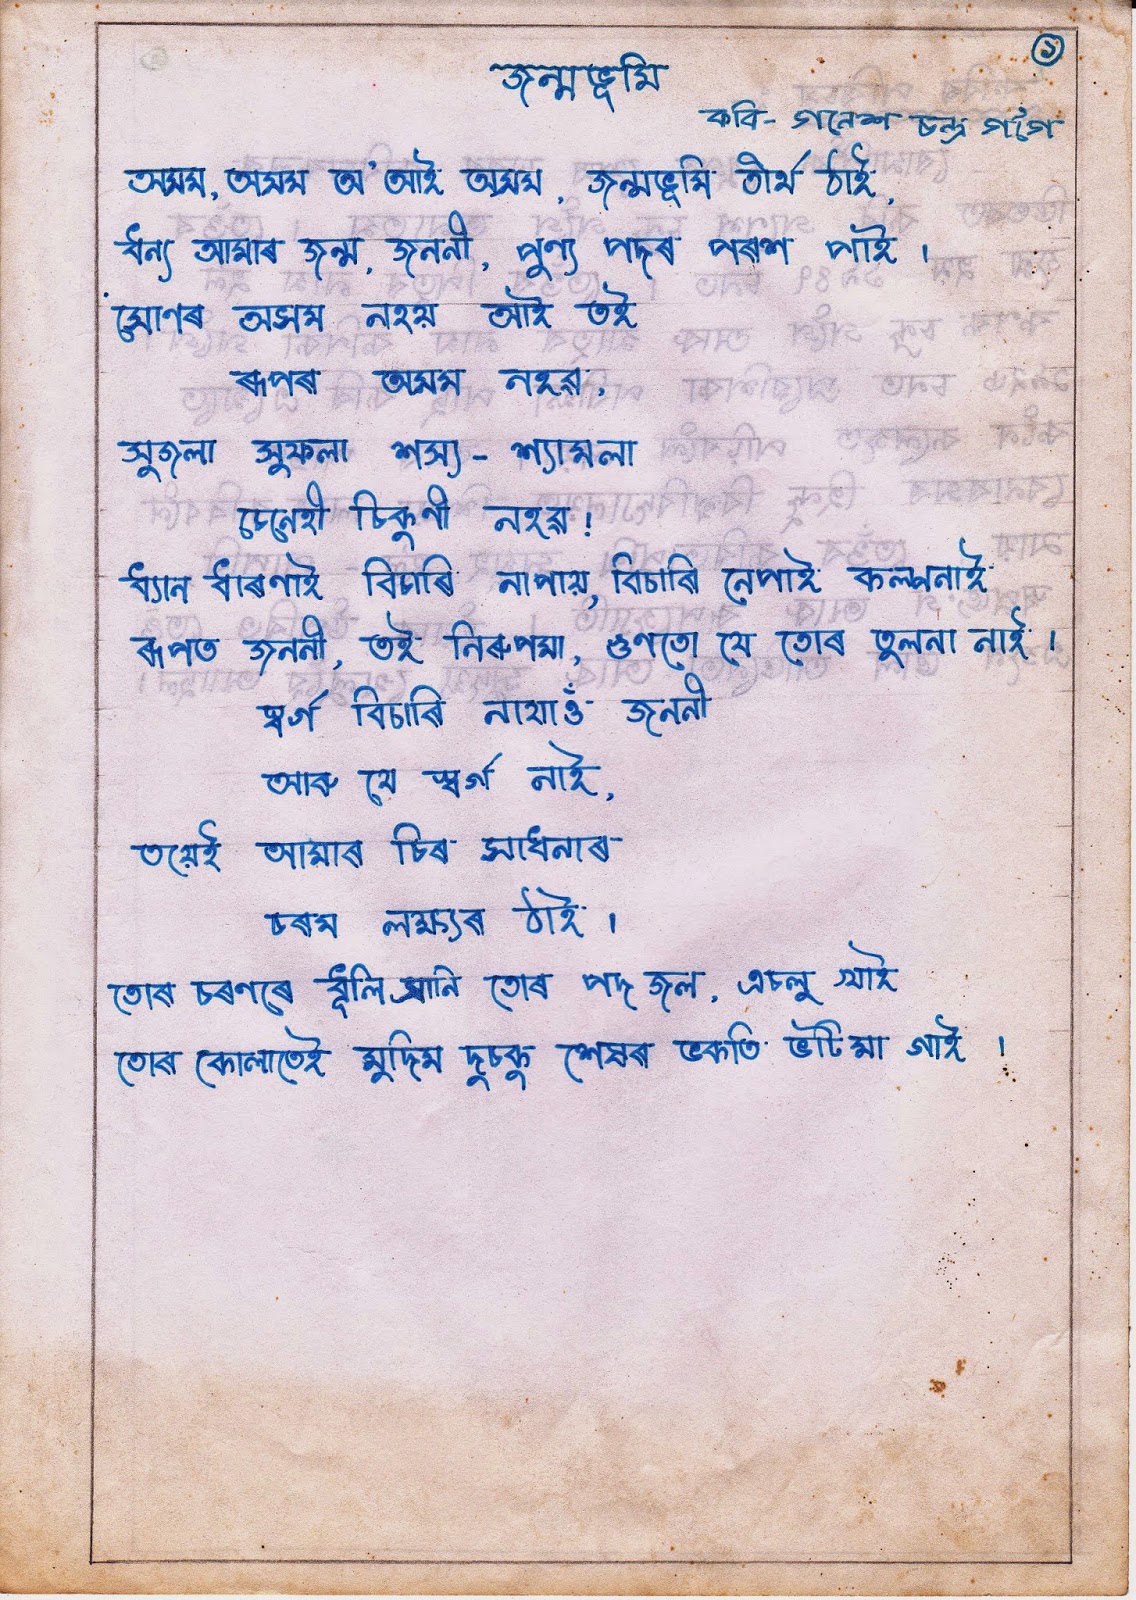 ১
জন্মভূমি
কবি- গনেশ চন্দ্ৰ গগৈ
অসম, অসম অ' আই অসম, জন্মভূমি তীৰ্থ ঠাই,
ধন্য আমাৰ জন্ম, জননী, পুণ্য পদৰ পৰশ পাই ।
সোণৰ অসম নহয় আই তই
ৰূপৰ অসম নহৱ,
সুজলা সুফলা শস্য - শ্যামলা
চেনেহী চিকুণী নহৱ !
ধ্যান ধাৰণাই বিচাৰি নাপায়, বিচাৰি নেপাই কল্পনাই
ৰূপত জননী, তই নিৰুপমা, গুণতো যে তোৰ তুলনা নাই ।
স্বৰ্গ বিচাৰি নাযাওঁ জননী
আৰু যে স্বৰ্গ নাই,
তয়েই আমাৰ চিৰ সাধনাৰ
চৰম লক্ষ্যৰ ঠাই ।
তোৰ চৰণৰে ধূলি সানি তোৰ পদ জল, এচলু খাই
তোৰ কোলাতেই মুদিম দুচকু শেষৰ ভকতি ভটিমা গাই ।